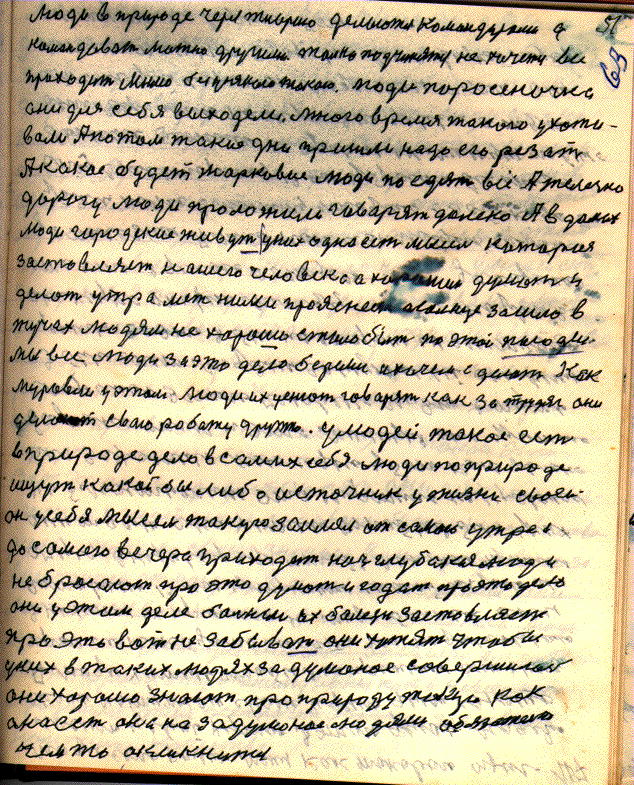 люди в природе через жившо делются командирами а 51
командоват можно другими. только подчинятся не хочет все 69
проходит мимо безо всякого такого, люди поросеночка
они для себя выходели. много время такого ухожи-
вали Апотом такие дни пришли надо его резат
Акакое будет жаркое люди поедят всё Ателечко
дорогу люди проложили говарят далеко Ав домах
люди городские живут у них одна ест мысл которая
заставляет нашего человека а хороший думат и
делат утра летними прояснел асолнце зашло в
тучах людям не хорошо стало быт по этой погоди
мы все люди за это дело берём и хочем сделат Как
муравли у этом люди их ценют говарят как за труд они
делают свою работу дружно. у людей такое ест
в природе дело в самих себя люди по природе
ищут какой бы либо источник у жизни своей
он у себя мысел такую заимел от самого утра и
до самого вечера приходит ноч глубокая люди
не бросают про это думат и годат про это дело
они у этим деле больны их болезн заставляет
про это вот не забыват они хотят чтобы
у них в таких людях задуманое совершилос
они хорошо знают про природу такую как
она ест она на задуманое людям обязательно
чем то окликнится